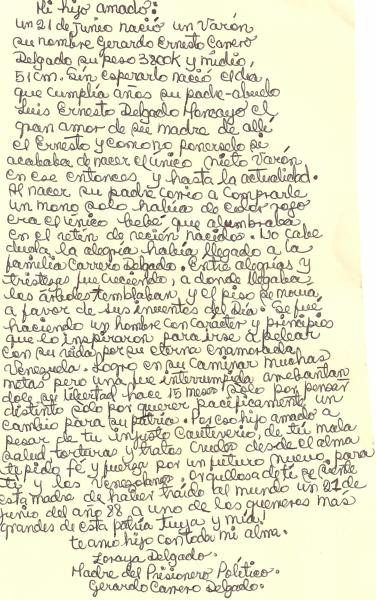 Mi hijo amado:
un 21 de Junio nació un Varón
su nombre Gerardo Ernesto Carrero
Delgado su peso 3800K y midio,
51cm. Sin esperarlo nació el dia
que cumplía años su padre-abuelo
Luis Ernesto Delgado Moncayo el
gran amor de su madre de allí
el Ernesto y como no ponerselo si
acababa de nacer el único nieto Varón
en ese entonces y hasta la actualidad.
Al nacer su padre corrio a comprarle
un mono solo habia de color rojo
era el único bebé que alumbraba
en el retén de recién nacidos. No cabe
duda la alegría había llegado a la
familia Carrero Delgado. Entre alegrías y
tristezas fue creciendo, a donde llegaba
los árboles temblaban y el piso se movia,
a favor de sus inventos del Día. Se fue
haciendo un hombre con Caracter y principios
que lo inspiraron para irse a pelear
con su vida por su eterna enamorada
Venezuela. Logro en su caminar muchas
metas pero una fue interrumpida arrebatan
dole su libertad hace 15 meses (solo por pensar
distinto solo por querer pacíficamente un
cambio para su patria. Por eso hijo amado a
pesar de tu injusto Cautiverio, de tu mala
salud torturas y tratos crueles desde el alma
te pido fé y fuerza por un futuro nuevo para
ti y los Venezolanos. Orgullosa de ti se siente
esta madre de haber traido al mundo un 21 de
junio del año 88 a uno de los guerreros más
grandes de esta patria tuya y mia.
te amo hijo con toda mi alma.
Loraya Delgado.
Madre del Prisionero Político.
Gerardo Carrero Delgado.